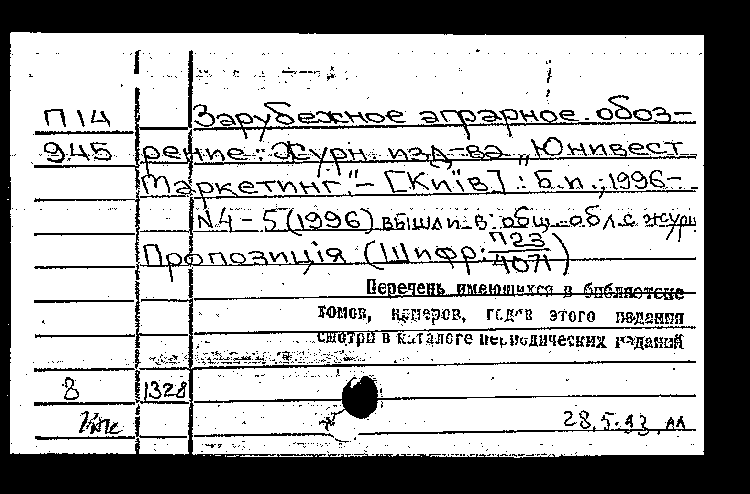 П14 Зарубежное аграрное обоз-
945 рение: Журн. изд-ва „Юнивест
Маркетинг".- [Київ] : Б.и.,1996-
N4-5(1996) вышли в общ. обл. с журн
Пропозиція (Шифр: П23/4071)
Перечень имеющихся в библиотеке
томов, номеров, годов этого издания
смотри в каталоге периодических изданий
8 1328
28.5.93,